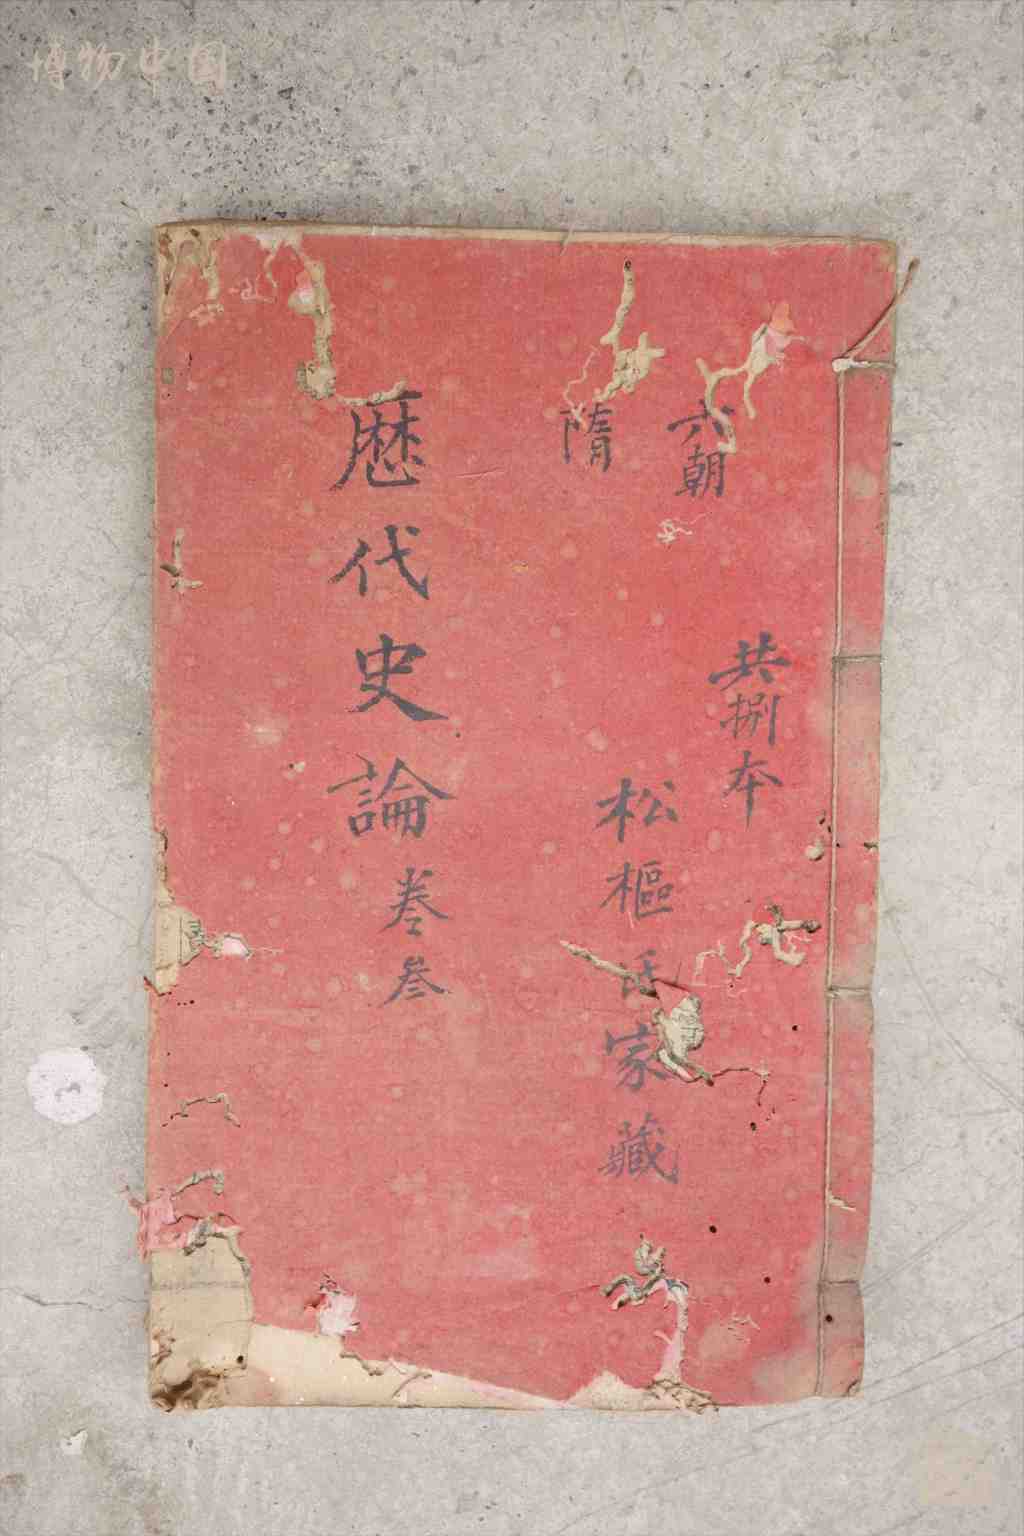 博物中国
六朝
隋
共捌本
松樞氏家藏
歷代史論
卷叁